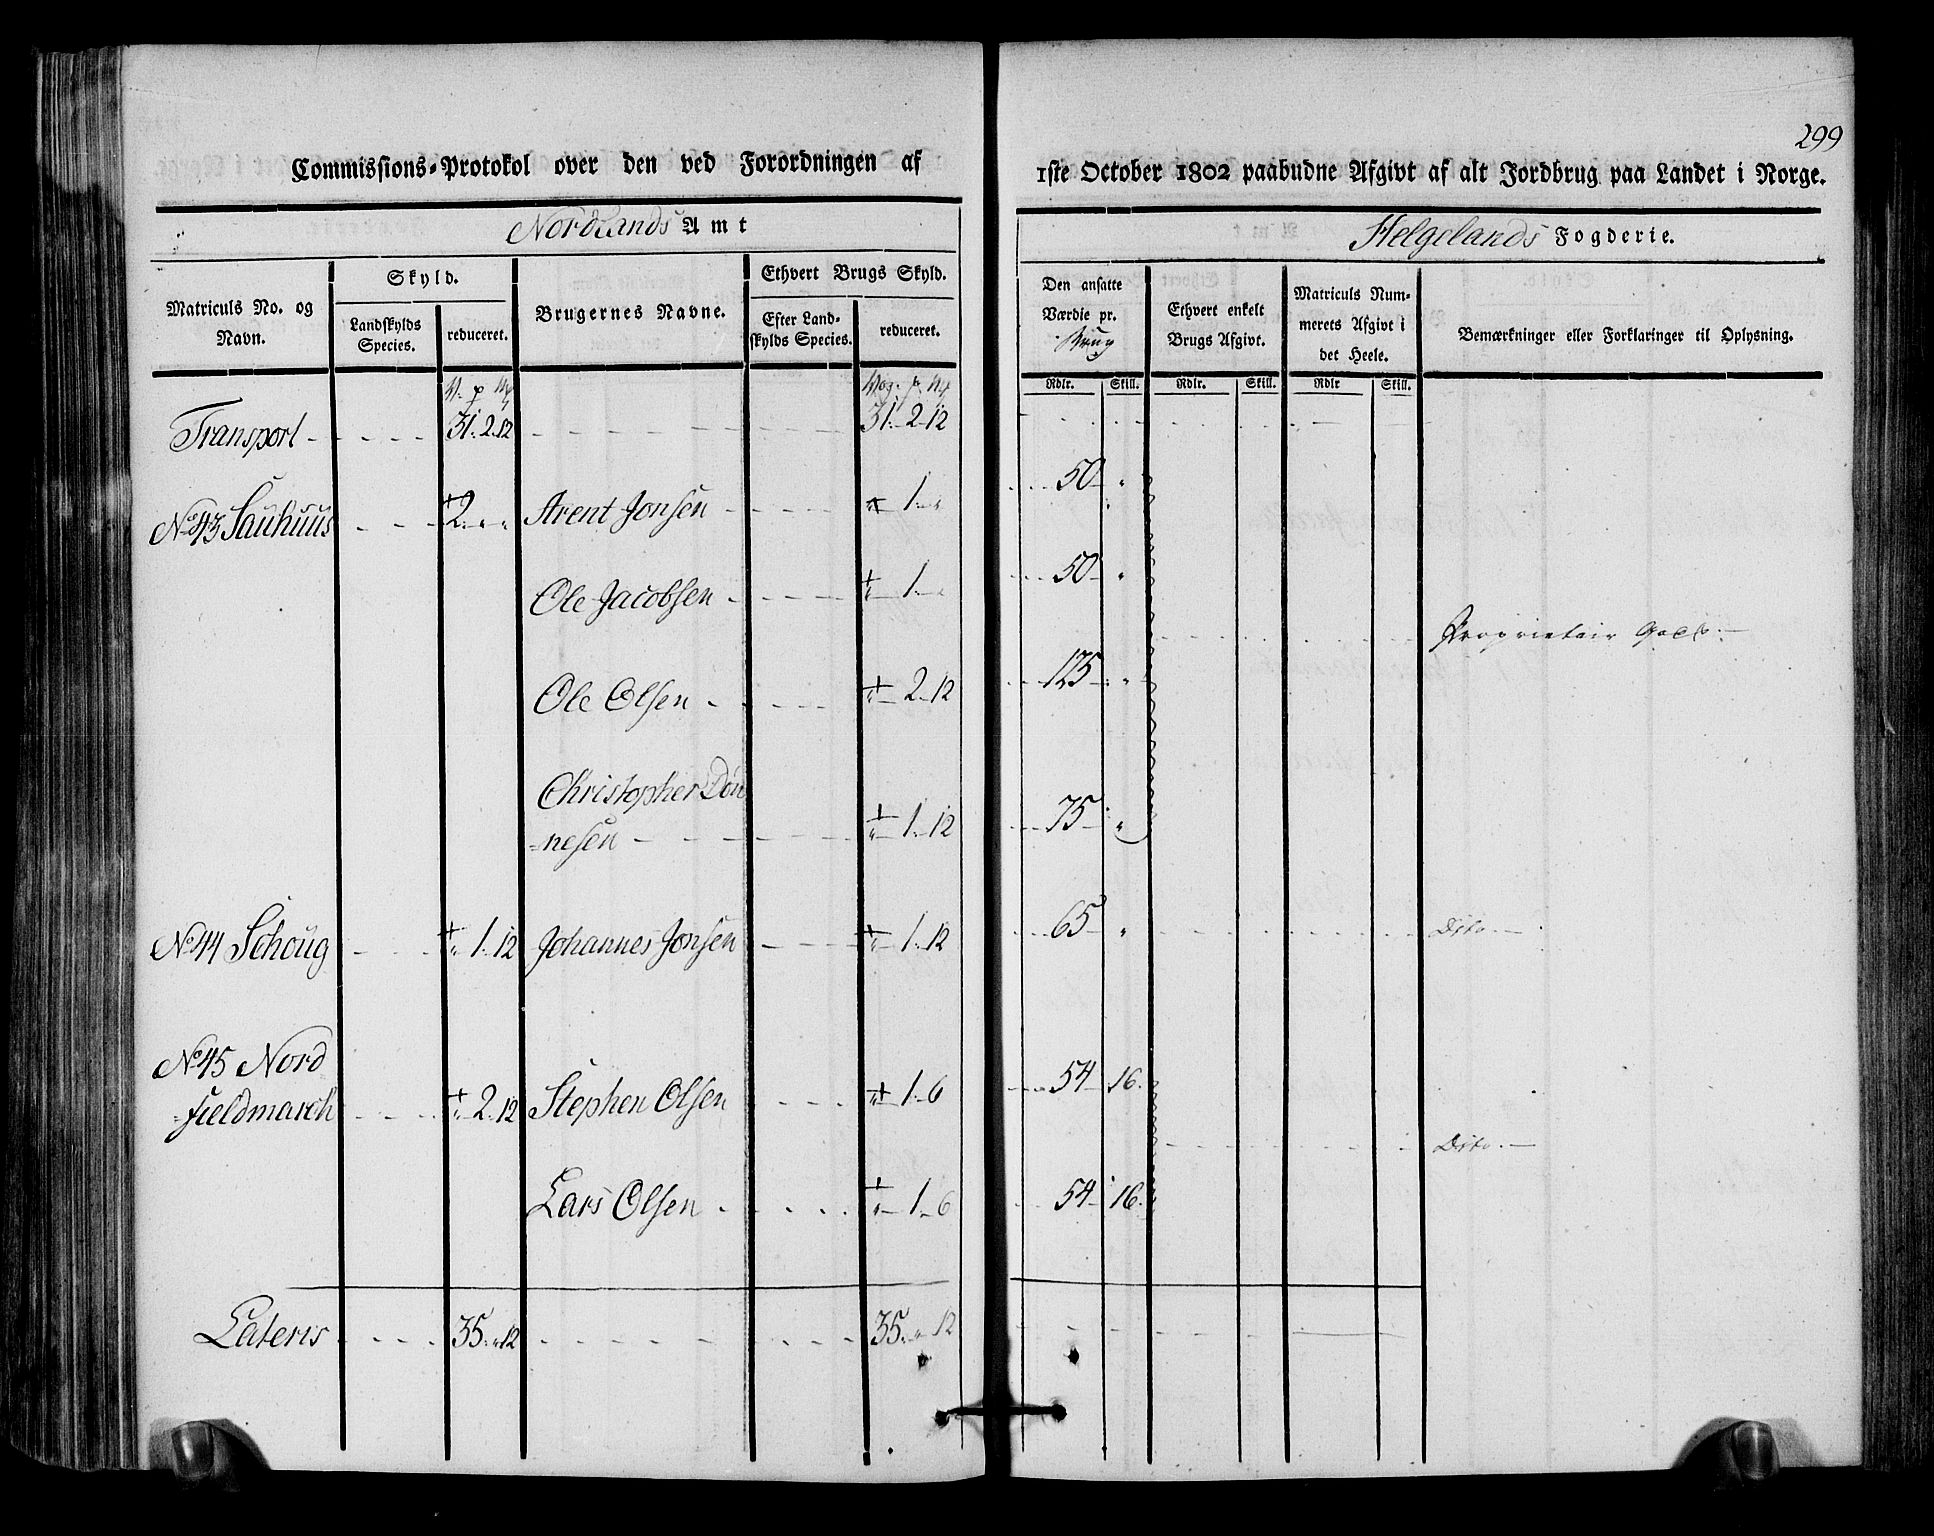 299
Commissions-Protokol over den ved Forordningen af 1ste October 1802 paabudne Afgivt af alt Jordbrug paa Landet i Norge.
Nordlands Amt Helgelands Fogderie.
Matriculs No. og Navn. Skyld. Landskylds Species. reduceret. Brugernes Navne. Ethvert Brugs Skyld. Efter Landskylds Species. reduceret. Den ansatte Værdie pr. Brug Ethvert enkelt Brugs Afgivt. Matriculs Nummerets Afgivt i det Heele. Bemærkninger eller Forklaringer til Oplysning.
Rdlr. Skill. Rdlr. Skill. Rdlr Skill.
Transport 31. 2. 12 31. 2. 12
No 43 Sauhuus 2. " " Arent Jonsen " 1. " 50 "
Ole Jacobsen " 1. " 50 "
Proprietair Gods.
Ole Olsen " 2. 12 125 "
Christopher Døn
=nesen " 1. 12 75 "
No 44 Schoug " 1. 12 Johannes Jonsen " 1. 12 65 " Dito.
No 45 Nord
=fieldmarch " 2. 12 Stephen Olsen " 1. 6 54 16.
Dito.
Lars Olsen " 1. 6 54 16.
Lateris 35. " 12 35. " 12